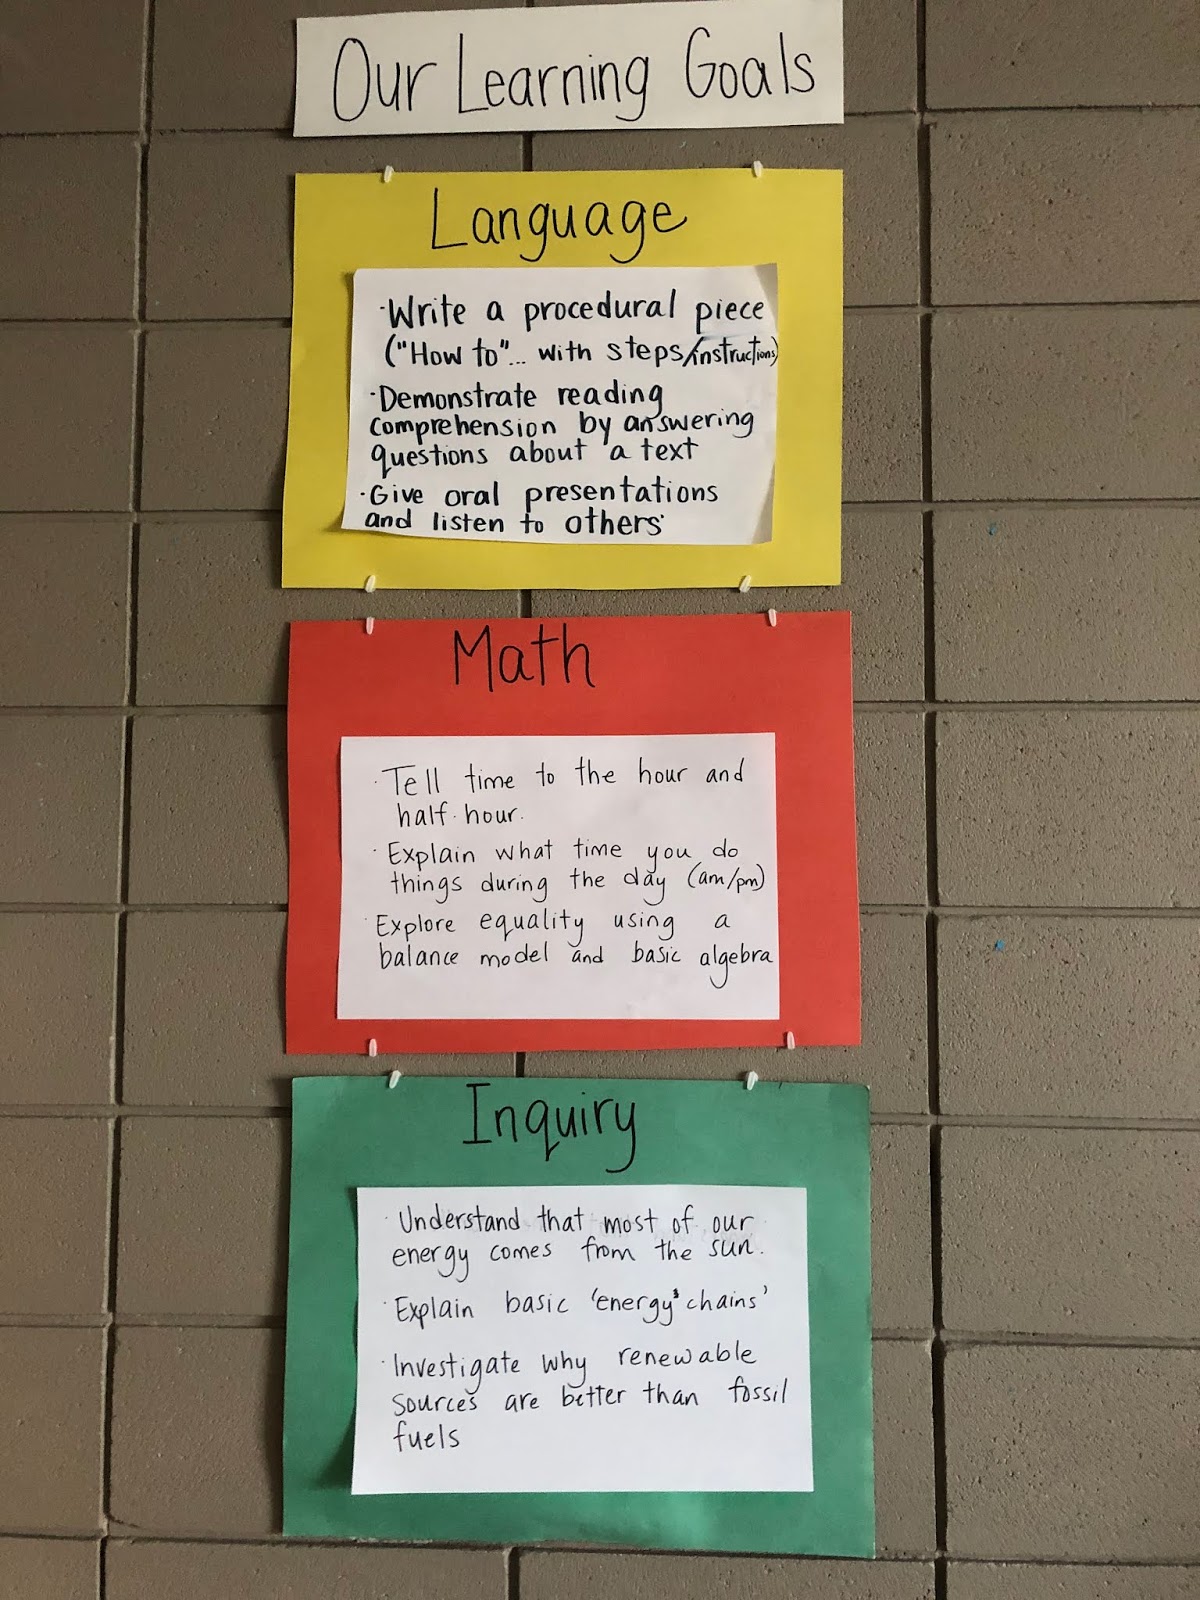 Our Learning Goals
Language
·Write a procedural piece
("How to"... with steps/instructions)
·Demonstrate reading
comprehension by answering
questions about a text
·Give oral presentations
and listen to others
Math
·Tell time to the hour and
half-hour.
·Explain what time you do
things during the day (am/pm)
·Explore equality using a
balance model and basic algebra
Inquiry
·Understand that most of our
energy comes from the sun.
·Explain basic 'energy' chains'
·Investigate why renewable
sources are better than fossil
fuels